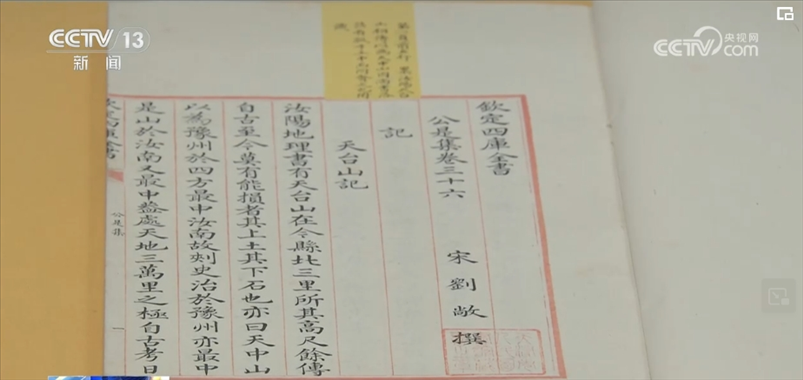 CCTV 13
新闻
央视网
CCTV.com
欽定四庫全書
公是集卷三十六
宋劉敞撰
記
天台山記
汝陽地理書有天台山在令縣北三里所其高尺餘傳
自古至今莫有能損者其上土其下石也亦曰天中山
以為豫州於四方最中汝南故刺史治於豫州亦最中
是山於汝南又最中葢處天地三萬里之極自古考日
公是集
一